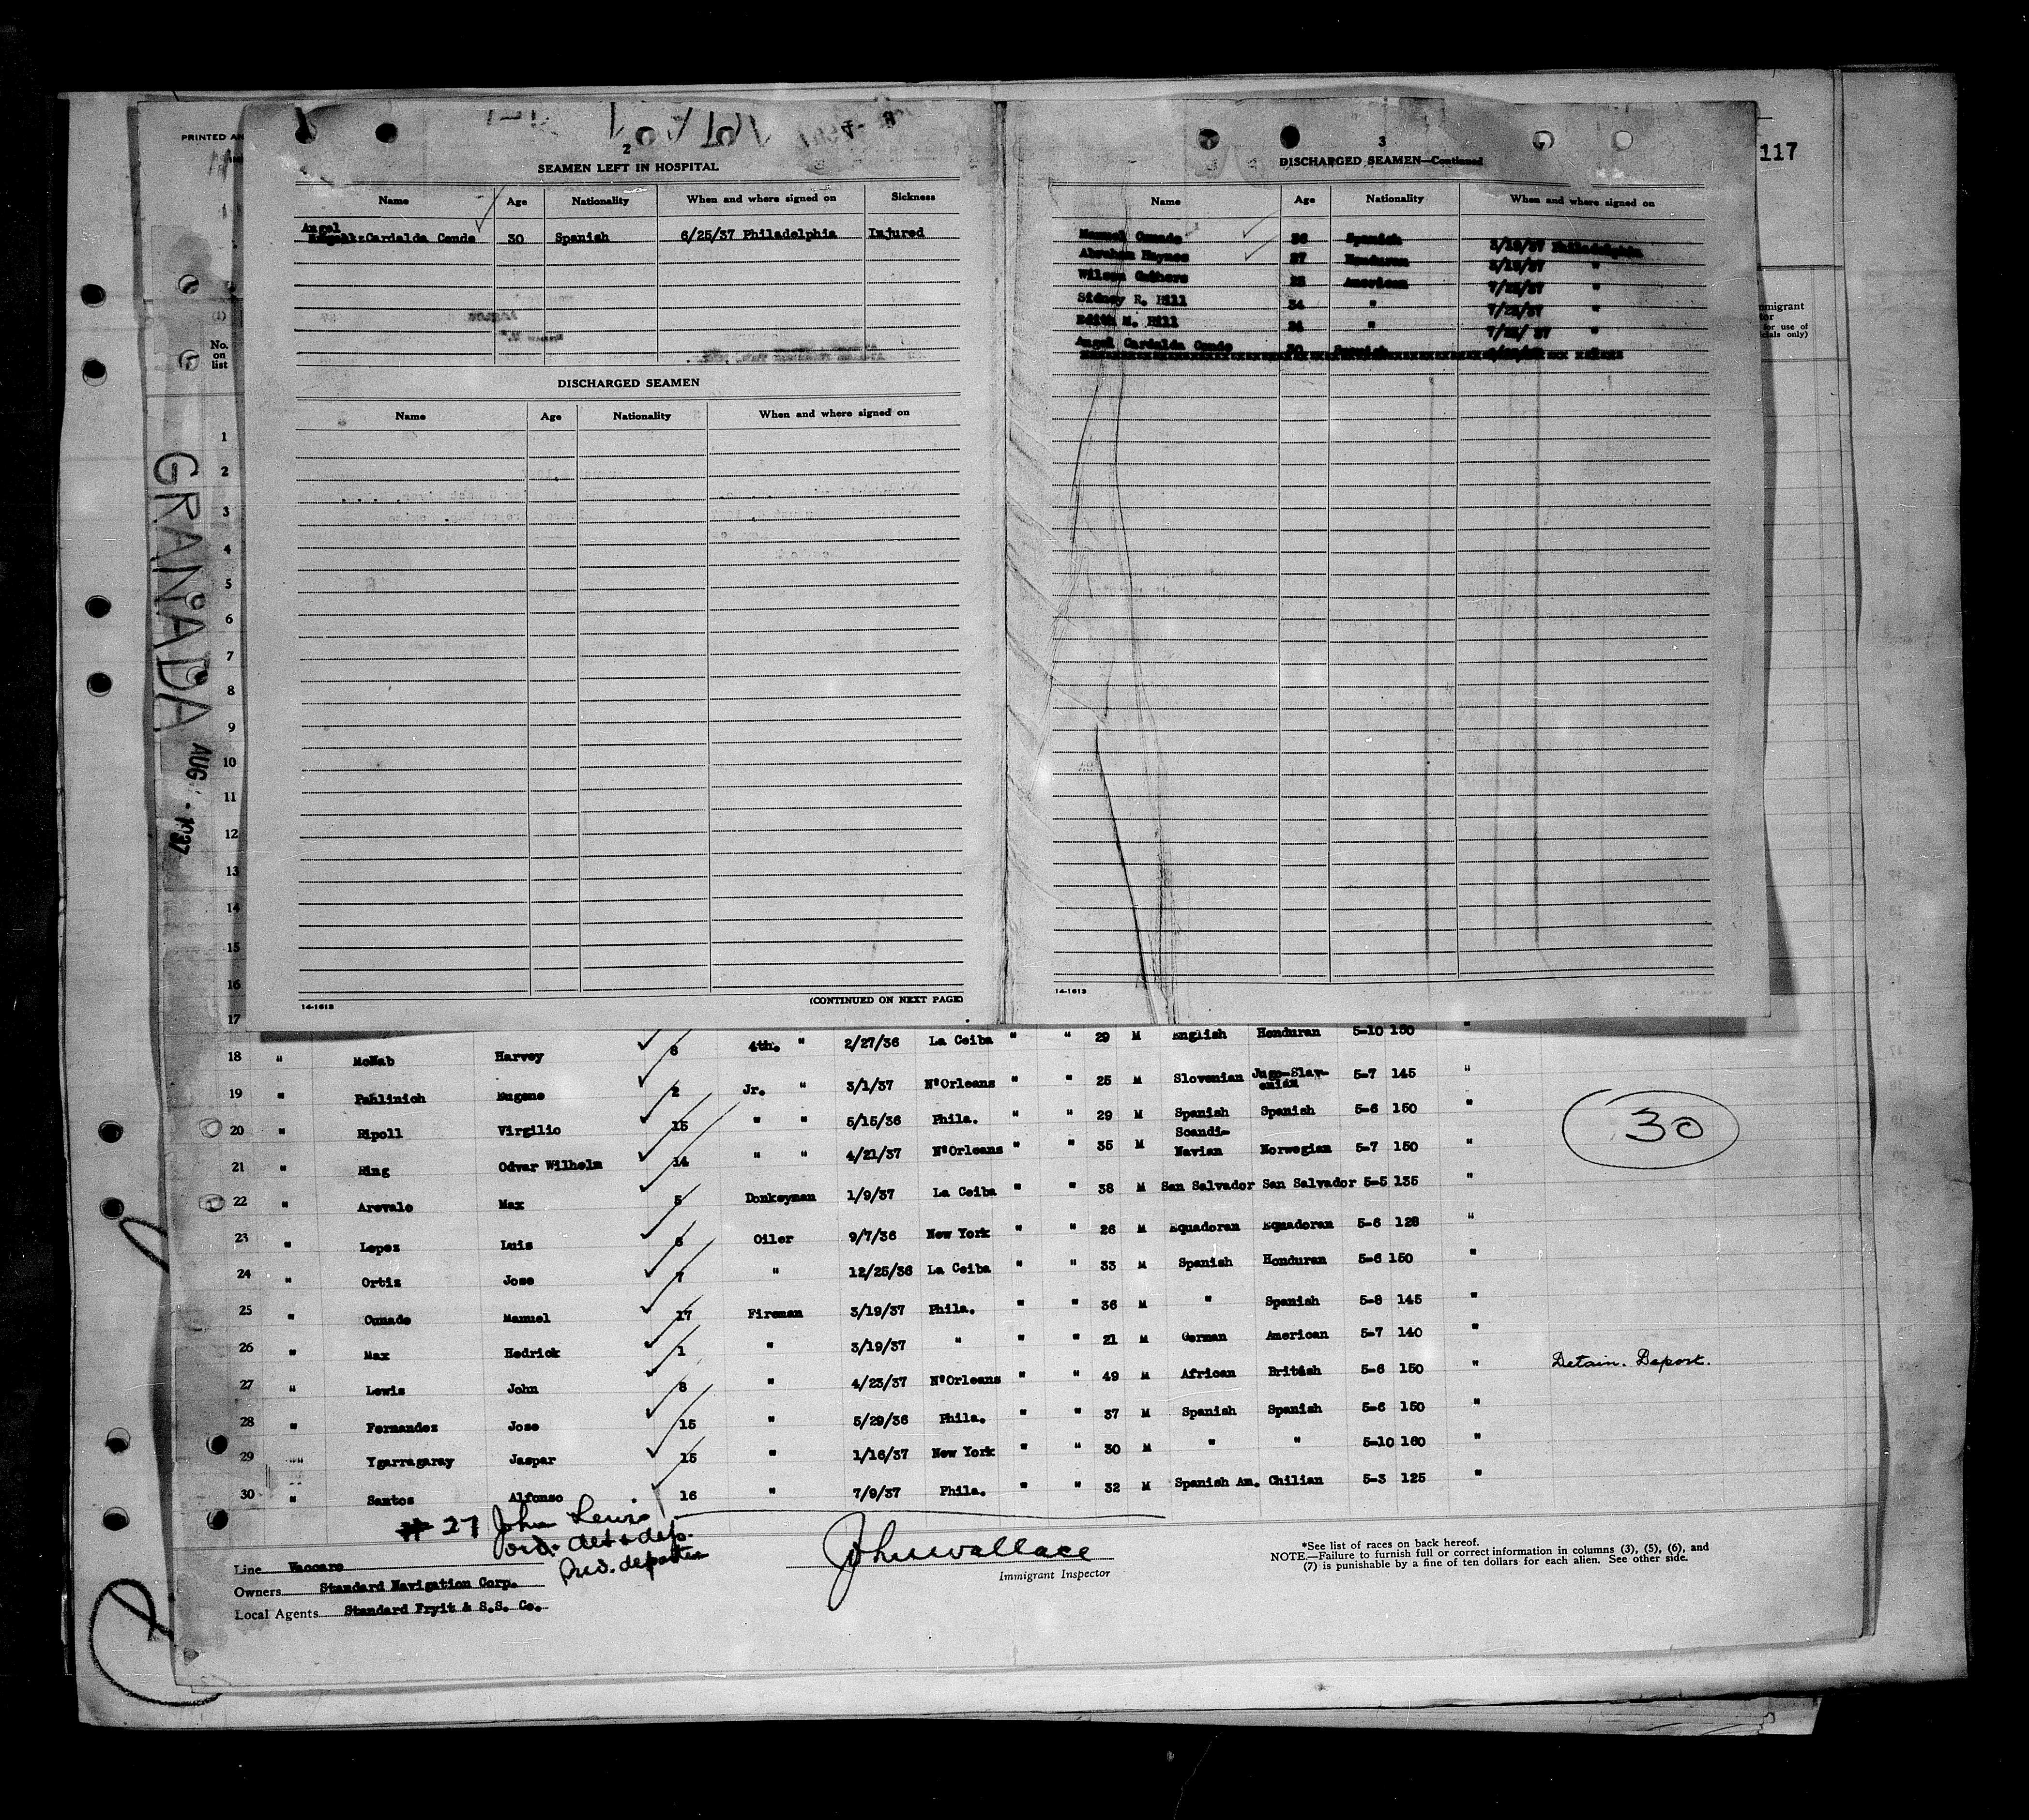 PRINTED AN
117
GRANADA
AUG
1937
2
SEAMEN LEFT IN HOSPITAL
Name Age Nationality When and where signed on Sickness
Angel
Cardalda Conde 30 Spanish 6/25/37 Philadelphia Injured
DISCHARGED SEAMEN
Name Age Nationality When and where signed on
14-1613 (CONTINUED ON NEXT PAGE)
3
DISCHARGED SEAMEN—Continued
Name Age Nationality When and where signed on
Manuel Cunado 36 Spanish 3/19/37 Philadelphia
Abraham Haynes 27 Honduran 3/19/37 "
Wilson 28 American 7/23/37 "
Sidney R. Hill 34 " 7/23/37 "
Edith M. Hill 24 " 7/23/37 "
Angel Cardalda Conde 30 Spanish
14-1613
mmigrant
for use of
cials only)
No.
on
list
1
2
3
4
5
6
7
8
9
10
11
12
13
14
15
16
17 English Honduran 5-10 150 "
18 " McNab Harvey 6 4th. " 2/27/36 La Ceiba " " 29 M
19 " Pahlinich Eugene 2 Jr. " 3/1/37 N'Orleans " " 25 M Slovenian Jugo-Slav-enian 5-7 145 "
20 " Ripoll Virgilio 15 " " 5/15/36 Phila. " " 29 M Spanish Spanish 5-6 150 "
21 " Ring Odvar Wilhelm 14 " " 4/21/37 N'Orleans " " 35 M Scandi-Navian Norwegian 5-7 150 "
22 " Arevalo Max 5 Donkeyman 1/9/37 La Ceiba " " 38 M San Salvador San Salvador 5-5 135 "
23 " Lopez Luis 6 Oiler 9/7/36 New York " " 26 M Equadoran Equadoran 5-6 128 "
24 " Ortiz Jose 7 " 12/25/36 La Ceiba " " 33 M Spanish Honduran 5-6 150 "
25 " Cunado Manuel 17 Fireman 3/19/37 Phila. " " 36 M " Spanish 5-8 145 "
26 " Max Hedrick 1 " 3/19/37 " " " 21 M German American 5-7 140 "
27 " Lewis John 8 " 4/23/37 N'Orleans " " 49 M African British 5-6 150 " Detain. Deport.
28 " Fernandez Jose 15 " 5/29/36 Phila. " " 37 M Spanish Spanish 5-6 150 "
29 " Ygarragaray Jaspar 15 " 1/16/37 New York " " 30 M " " 5-10 160 "
30 " Santos Alfonso 16 " 7/9/37 Phila. " " 32 M Spanish Am. Chilian 5-3 125 "
30
# 27 John Lewis
ord. det & dep.
Line Vaccaro
Owners Standard Navigation Corp.
Local Agents Standard Fryit & S.S. Co.
John Wallace
Immigrant Inspector
*See list of races on back hereof.
NOTE.—Failure to furnish full or correct information in columns (3), (5), (6), and
(7) is punishable by a fine of ten dollars for each alien. See other side.